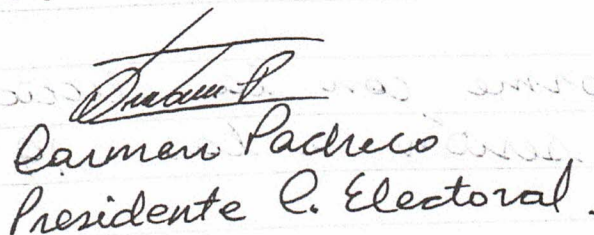 Carmen Pacheco
Presidente C. Electoral.